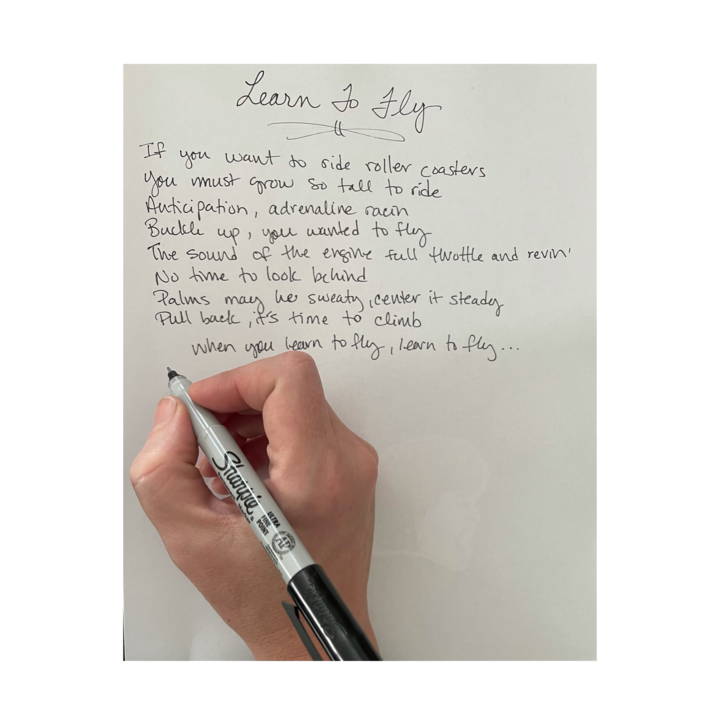 Learn To Fly
If you want to ride roller coasters
You must grow so tall to ride
Anticipation, adrenaline racin
Buckle up, you wanted to fly
The sound of the engine full throttle and revin'
No time to look behind
Palms may be sweaty, center it steady
Pull back, it's time to climb
when you learn to fly, learn to fly...
Sharpie
ULTRA
FINE
POINT